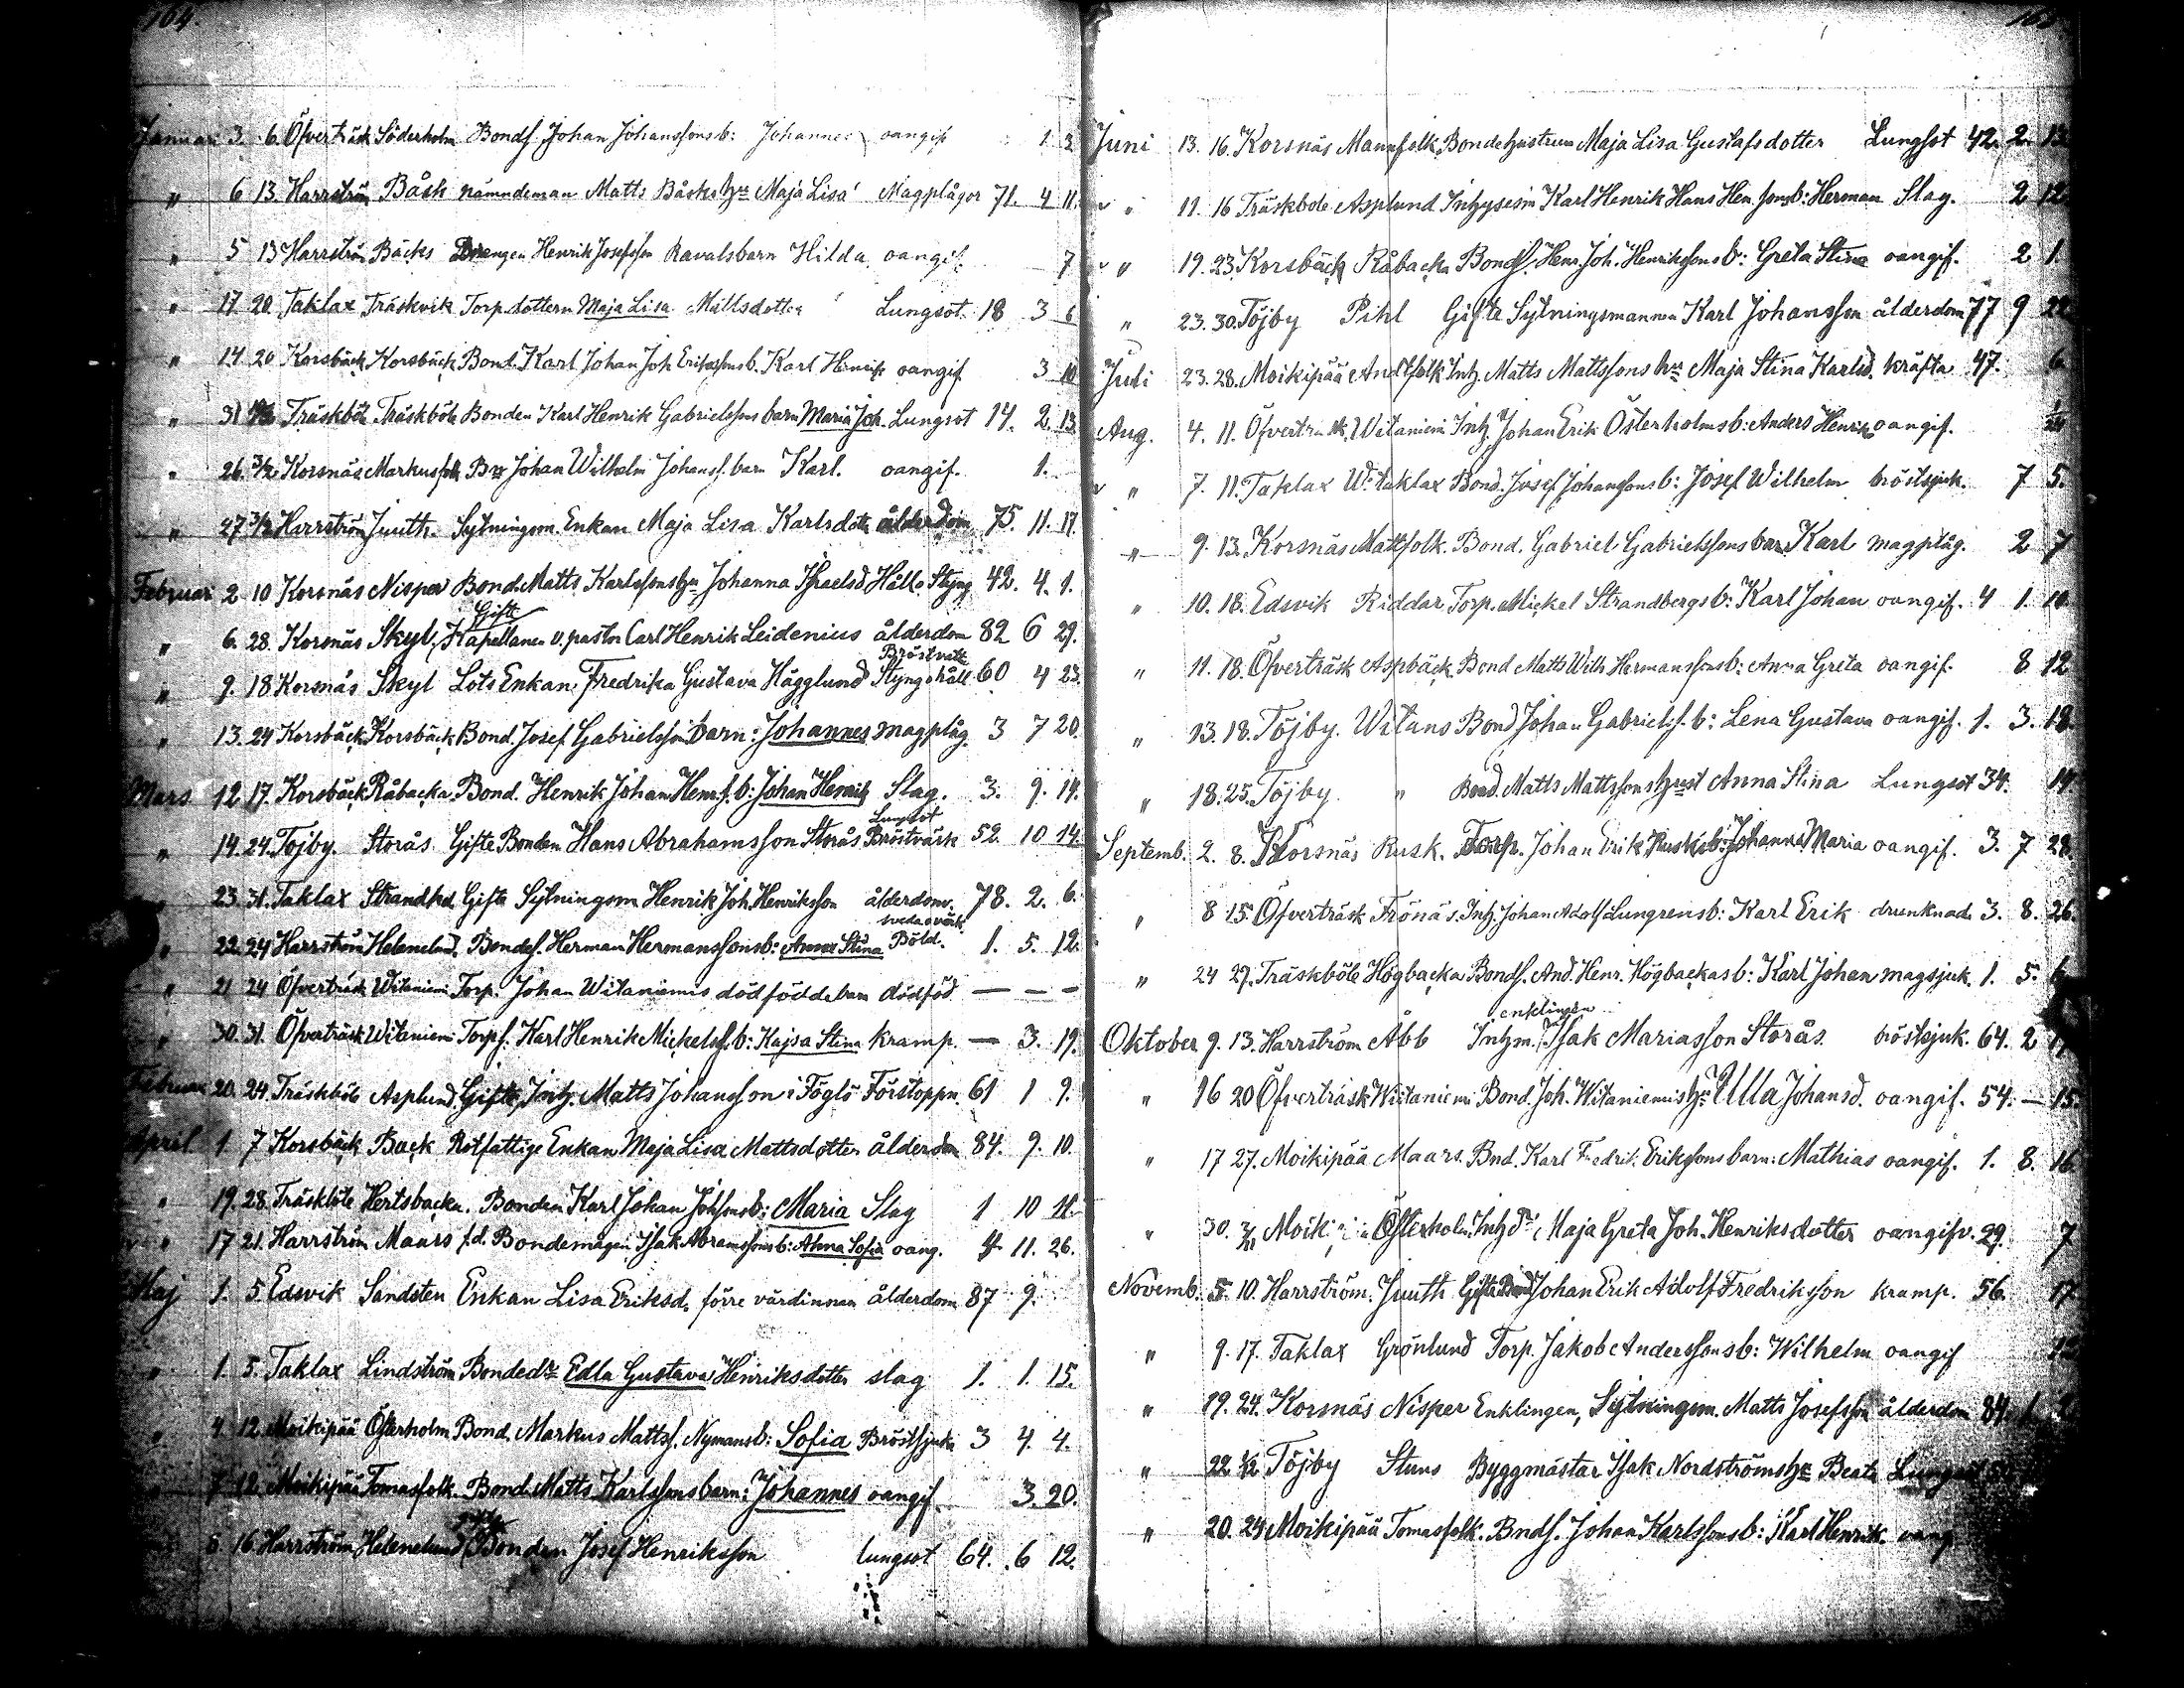 164.
Januari 3. 6. Öfverträsk Söderholm Bonds. Johan Johanssons b: Johannes oangif 1 3
" 6 13. Harrström Båsk nämndeman Matts Båsks hu Maja Lisa Magplågor 71. 4 11.
" 5 13 Harrström Bäcks Drengen Henrik Josefsson Ravalsbarn Hilda oangif. 7
" 17 20 Taklax Träskvik Torp.dottern Maja Lisa Mattsdotter Lungsot 18 3 6
" 14. 20 Korsbäck Korsbäck Bond. Karl Johan Joh Erikssons b. Karl Henrik oangif 3 10
" 31 Träskböle Träskböle Bonden Karl Henrik Gabrielssons barn Maria Joh. Lungsot 14. 2. 13.
" 26. 3/2 Korsnäs Markusfolk Johan Wilhelm Johanss. barn Karl. oangif. 1.
" 27 3/2 Harrström Juuth. Sytningsm. Enkan Maja Lisa Karlsdotr ålderdom 75. 11. 17.
Februari 2 10 Korsnäs Nisper Bond. Matts Karlssons hu Johanna Israelsd Håll o. Styng 42. 4. 1.
Gifte
" 6. 28. Korsnäs Skyt. Kapellanen v. pastor Carl Henrik Leidenius ålderdom 82 6 29.
Bröstvatt.
" 9. 18 Korsnäs Skyt Lots Enkan Fredrika Gustava Hägglund Styng o håll 60 4 23.
" 13. 24 Korsbäck Korsbäck Bond. Josef Gabrielssons barn: Johannes magplåg. 3 7 20.
Mars 12 17. Korsbäck Råbacka. Bond. Henrik Johan Henr.s. b: Johan Henrik Slag. 3. 9. 14.
Lungsot
" 14. 24. Töjby. Storås Gifte Bonden Hans Abrahamsson Storås Bröstvärk 52 10 14.
23. 31. Taklax Strandhed Gifte Sytningsm Henrik Joh. Henriksson ålderdom. 78. 2. 6.
sveda o värk
" 22. 24 Harrström Helenelund. Bondes. Herman Hermanssons b: Anna Stina Böld. 1. 5. 12.
" 21 24 Öfverträsk Witaniemi Torp. Johan Witaniemis dödfödde barn dödföd — — —
" 30. 31. Öfverträsk Witaniemi Torp. Karl Henrik Mickelss. b: Kajsa Stina kramp. — 3. 19.
Februari 20. 24. Träskböle Asplund. Gifte, Inh. Matts Johansson i Föglö Förstoppn. 61 1 9.
April 1. 7 Korsbäck Back Rotfattige Enkan Maja Lisa Mattsdotter ålderdom 84. 9. 10.
" 19. 28. Träskböle Hertsbacka. Bonden Karl Johan Johssons b: Maria Slag 1 10 11.
" 17 21. Harrström Maars f.d. Bondemågen Isak Abramssons b: Anna Sofia oang. 4 11. 26.
Maj 1. 5. Edsvik Sandsten Enkan Lisa Eriksd. förre värdinnan ålderdom 87 9.
" 1. 5. Taklax Lindström Bondedr Edla Gustava Henriksdotter slag 1. 1. 15.
" 4. 12. Moikipää Österholm Bond. Markus Mattss. Nymans b: Sofia Bröstsjuka 3 4. 4.
" 7 12. Moikipää Tomasfolk. Bond. Matts Karlssons barn: Johannes oangif. 3. 20.
16 Harrström Helenelund Bonden Josef Henriksson lungsot 64. 6 12.
Juni 13. 16. Korsnäs Mannfolk Bondehustrun Maja Lisa Gustafsdotter Lungsot 42. 2. 13
" 11. 16 Träskböle Asplund Inhysesm Karl Henrik Hans Hen.sons b: Herman Slag. 2 12
" 19. 23. Korsbäck Råbacka Bonds. Hen. Joh. Henrikssons b: Greta Stina oangif. 2 1.
" 23. 30. Töjby Pihl Gifte Sytningsmannen Karl Johansson ålderdom 77 9 22
Juli 23. 28. Moikipää Andfolk Inh. Matts Mattssons hu Maja Stina Karlsd. kräfta 47. 6
Aug. 4. 11. Öfverträsk, Witaniemi Inh. Johan Erik Österholms b: Anders Henrik oangif.
" 7. 11. Taklax W:taklax Bond. Josef Johanssons b: Josef Wilhelm bröstsjuk. 7 5.
" 9. 13. Korsnäs Mattfolk. Bond. Gabriel Gabrielssons barn Karl magplåg. 2 7
" 10. 18. Edsvik Riddar Torp. Mickel Strandbergs b: Karl Johan oangif. 4 1. 10
" 11. 18. Öfverträsk Aspbäck. Bond Matts Wilh Hermanssons b: Anna Greta oangif. 8 12
" 13. 18. Töjby. Witans Bond Johan Gabrielss. b: Lena Gustava oangif. 1. 3. 18.
" 18. 25. Töjby. " Bond. Matts Mattssons hust Anna Stina Lungsot 34. 14
Septemb. 2. 8. Korsnäs Rusk. Torp. Johan Erik Rusks b: Johanna Maria oangif. 3. 7 28.
" 8 15. Öfverträsk Frönäs. Inh. Johan Adolf Lungrens b: Karl Erik drunknad. 3. 8. 26.
" 24 27. Träskböle Högbacka Bonds. And. Henr. Högbackas b: Karl Johan magsjuk. 1. 5. 6
enklingen
Oktober 9. 13. Harrström Abb Inhm. Isak Mariasson Storås. bröstsjuk. 64. 2 17
" 16 20 Öfverträsk Witaniemi Bond. Joh. Witaniemis hu Ulla Johansd. oangif. 54. — 15.
" 17 27. Moikipää Maars. Bnd. Karl Fredrik Erikssons barn: Mathias oangif. 1. 8. 16
" 30. Moikipää Österholm Inh dr Maja Greta Joh. Henriksdotter oangifv. 29. 7
Novemb. 5. 10. Harrström. Juuth Gifte Bond Johan Erik Adolf Fredriksson kramp. 56. 17
" 9. 17. Taklax Grönlund Torp. Jakob Anderssons b: Wilhelm oangif
" 19. 24. Korsnäs Nisper Enklingen, Sytningsm. Matts Josefsson ålderdom 84. 1
" 22. Töjby Stuns Byggmästar Isak Nordströms hu Beata Lungsot
" 20. 24 Moikipää Tomasfolk. Bnds. Johan Karlssons b: Karl Henrik. oang